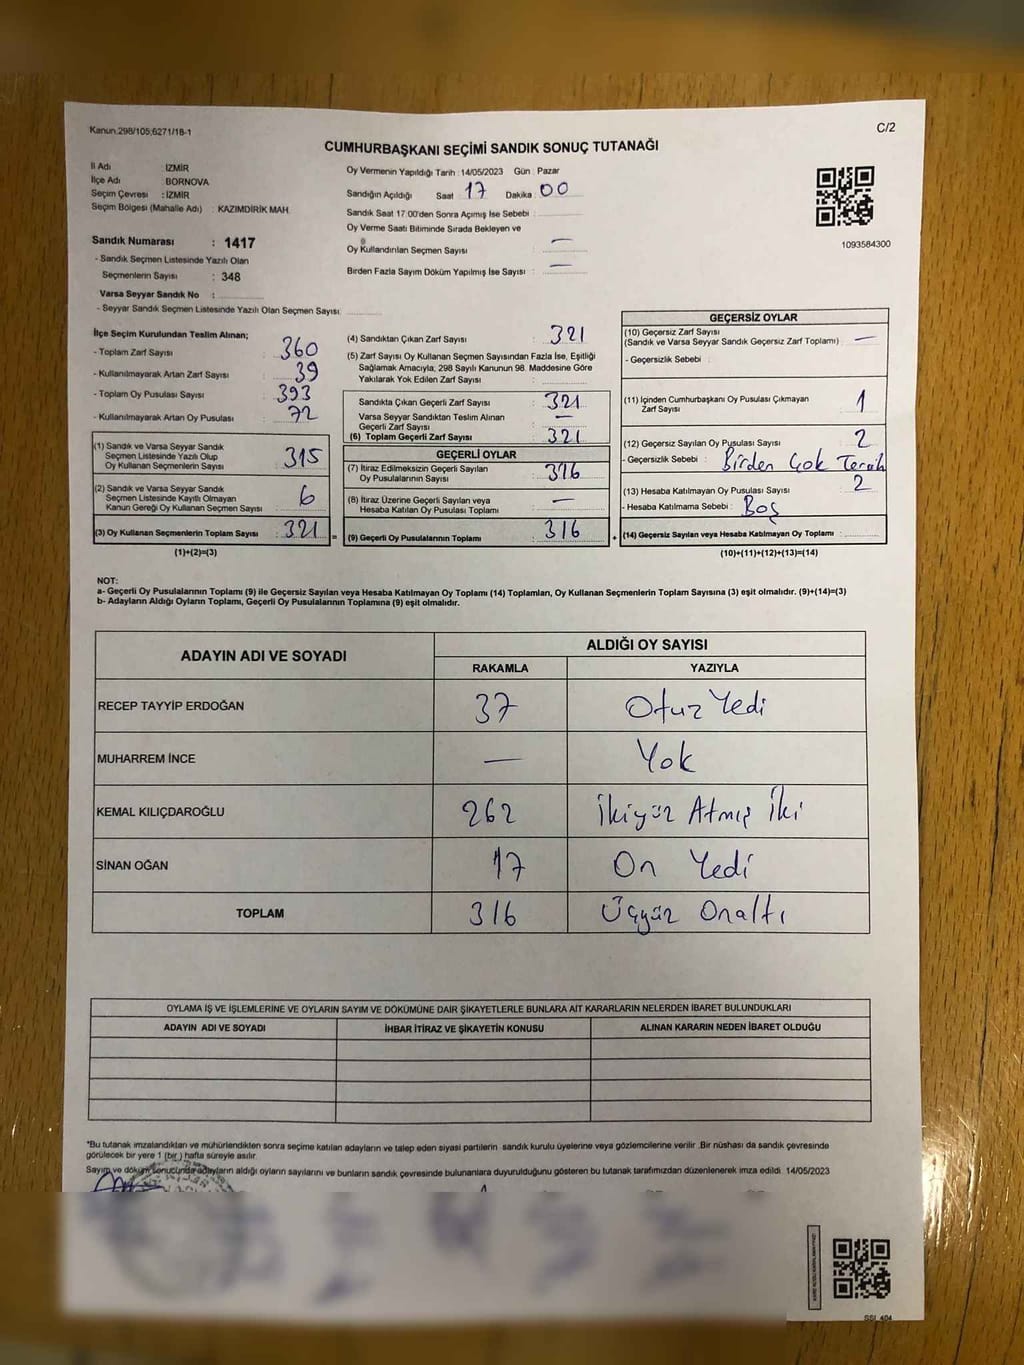 Kanun.298/105;6271/18-1
C/2
CUMHURBAŞKANI SEÇİMİ SANDIK SONUÇ TUTANAĞI
İl Adı : İZMİR
İlçe Adı : BORNOVA
Seçim Çevresi : İZMİR
Seçim Bölgesi (Mahalle Adı) : KAZIMDİRİK MAH.
Oy Vermenin Yapıldığı Tarih :14/05/2023 Gün : Pazar
Sandığın Açıldığı Saat : 17 Dakika : 00
Sandık Saat 17:00'den Sonra Açımış İse Sebebi :
Oy Verme Saati Bitiminde Sırada Bekleyen ve
Oy Kullandırılan Seçmen Sayısı : —
Birden Fazla Sayım Döküm Yapılmış İse Sayısı : —
1093584300
Sandık Numarası : 1417
- Sandık Seçmen Listesinde Yazılı Olan
Seçmenlerin Sayısı : 348
Varsa Seyyar Sandık No :
- Seyyar Sandık Seçmen Listesinde Yazılı Olan Seçmen Sayısı:
İlçe Seçim Kurulundan Teslim Alınan;
- Toplam Zarf Sayısı : 360
- Kullanılmayarak Artan Zarf Sayısı : 39
- Toplam Oy Pusulası Sayısı : 393
- Kullanılmayarak Artan Oy Pusulası : 72
(1) Sandık ve Varsa Seyyar Sandık
Seçmen Listesinde Yazılı Olup
Oy Kullanan Seçmenlerin Sayısı : 315
(2) Sandık ve Varsa Seyyar Sandık
Seçmen Listesinde Kayıtlı Olmayan
Kanun Gereği Oy Kullanan Seçmen Sayısı : 6
(3) Oy Kullanan Seçmenlerin Toplam Sayısı : 321
(1)+(2)=(3)
(4) Sandıktan Çıkan Zarf Sayısı : 321
(5) Zarf Sayısı Oy Kullanan Seçmen Sayısından Fazla İse, Eşitliği
Sağlamak Amacıyla; 298 Sayılı Kanunun 98. Maddesine Göre
Yakılarak Yok Edilen Zarf Sayısı :
Sandıkta Çıkan Geçerli Zarf Sayısı : 321
Varsa Seyyar Sandıktan Teslim Alınan
Geçerli Zarf Sayısı : —
(6) Toplam Geçerli Zarf Sayısı : 321
GEÇERLİ OYLAR
(7) İtiraz Edilmeksizin Geçerli Sayılan
Oy Pusulasının Sayısı : 316
(8) İtiraz Üzerine Geçerli Sayılan veya
Hesaba Katılan Oy Pusulası Toplamı : —
= (9) Geçerli Oy Pusulalarının Toplamı : 316
GEÇERSİZ OYLAR
(10) Geçersiz Zarf Sayısı
(Sandık ve Varsa Seyyar Sandık Geçersiz Zarf Toplamı) : —
- Geçersizlik Sebebi :
(11) İçinden Cumhurbaşkanı Oy Pusulası Çıkmayan
Zarf Sayısı : 1
(12) Geçersiz Sayılan Oy Pusulası Sayısı : 2
- Geçersizlik Sebebi : Birden Çok Tercih
(13) Hesaba Katılmayan Oy Pusulası Sayısı : 2
- Hesaba Katılmama Sebebi : Boş
+ (14) Geçersiz Sayılan veya Hesaba Katılmayan Oy Toplamı :
(10)+(11)+(12)+(13)=(14)
NOT:
a- Geçerli Oy Pusulalarının Toplamı (9) ile Geçersiz Sayılan veya Hesaba Katılmayan Oy Toplamı (14) Toplamları, Oy Kullanan Seçmenlerin Toplam Sayısına (3) eşit olmalıdır. (9)+(14)=(3)
b- Adayların Aldığı Oyların Toplamı, Geçerli Oy Pusulalarının Toplamına (9) eşit olmalıdır.
ADAYIN ADI VE SOYADI ALDIĞI OY SAYISI
RAKAMLA YAZIYLA
RECEP TAYYİP ERDOĞAN 37 Otuz Yedi
MUHARREM İNCE — Yok
KEMAL KILIÇDAROĞLU 262 İkiyüz Atmış İki
SİNAN OĞAN 17 On Yedi
TOPLAM 316 Üçyüz Onaltı
OYLAMA İŞ VE İŞLEMLERİNE VE OYLARIN SAYIM VE DÖKÜMÜNE DAİR ŞİKAYETLERLE BUNLARA AİT KARARLARIN NELERDEN İBARET BULUNDUKLARI
ADAYIN ADI VE SOYADI İHBAR İTİRAZ VE ŞİKAYETİN KONUSU ALINAN KARARIN NEDEN İBARET OLDUĞU
*Bu tutanak imzalandıktan ve mühürlendikten sonra seçime katılan adayların ve talep eden siyasi partilerin sandık kurulu üyelerine veya gözlemcilerine verilir. Bir nüshası da sandık çevresinde
görülecek bir yere 1 (bir) hafta süreyle asılır.
Sayım ve döküm sonucunda adayların aldığı oyların sayılarını ve bunların sandık çevresinde bulunanlara duyurulduğunu gösteren bu tutanak tarafımızdan düzenlenerek imza edildi. 14/05/2023